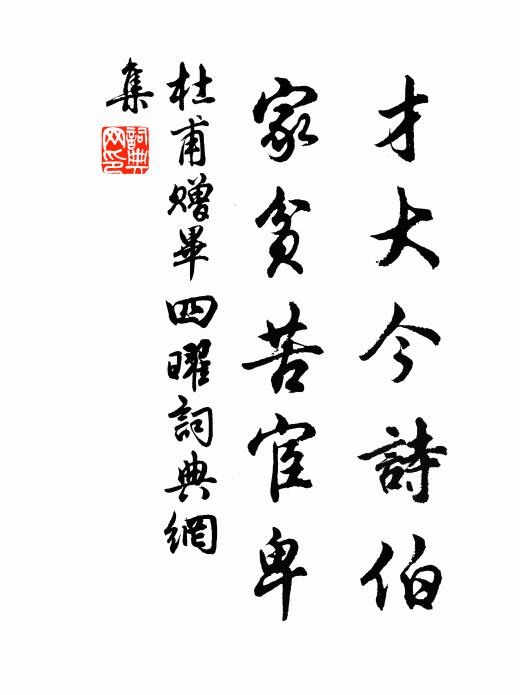 才大今詩伯
家貧苦宦卑
杜甫贈畢四曜詞典網
集
詞典
网印